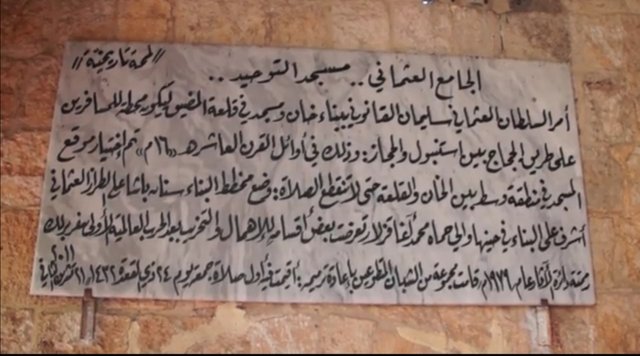 لمحة تاريخية//
الجامع العثماني.. مسجد التوحيد..
أمر السلطان العثماني سليمان القانوني ببناء خان ومسجد في قلعة المضيق ليكون محطة للمسافرين
على طريق الحجاج بين استنبول والحجاز: وذلك في أوائل القرن العاشر هـ «١٦م» تم اختيار موقع
المسجد في منطقة وسط بين الخان والقلعة حتى لا تنقطع الصلاة: وضع مخطط البناء سنان باشا على الطراز العثماني
أشرف على البناء في حينها والي حماه محمد آغا قزلار تعرضت بعض أقسامه للإهمال والتخريب بعد الحرب العالمية الأولى
رممته دائرة الآثار عام ١٩٧٩م قامت مجموعة من الشبان المتطوعين بإعادة ترميمه: أقيمت فيه أول صلاة جمعة يوم ٢٤ ذي القعدة ١٤٣٢هـ ٢١ تشرين ٢٠١١